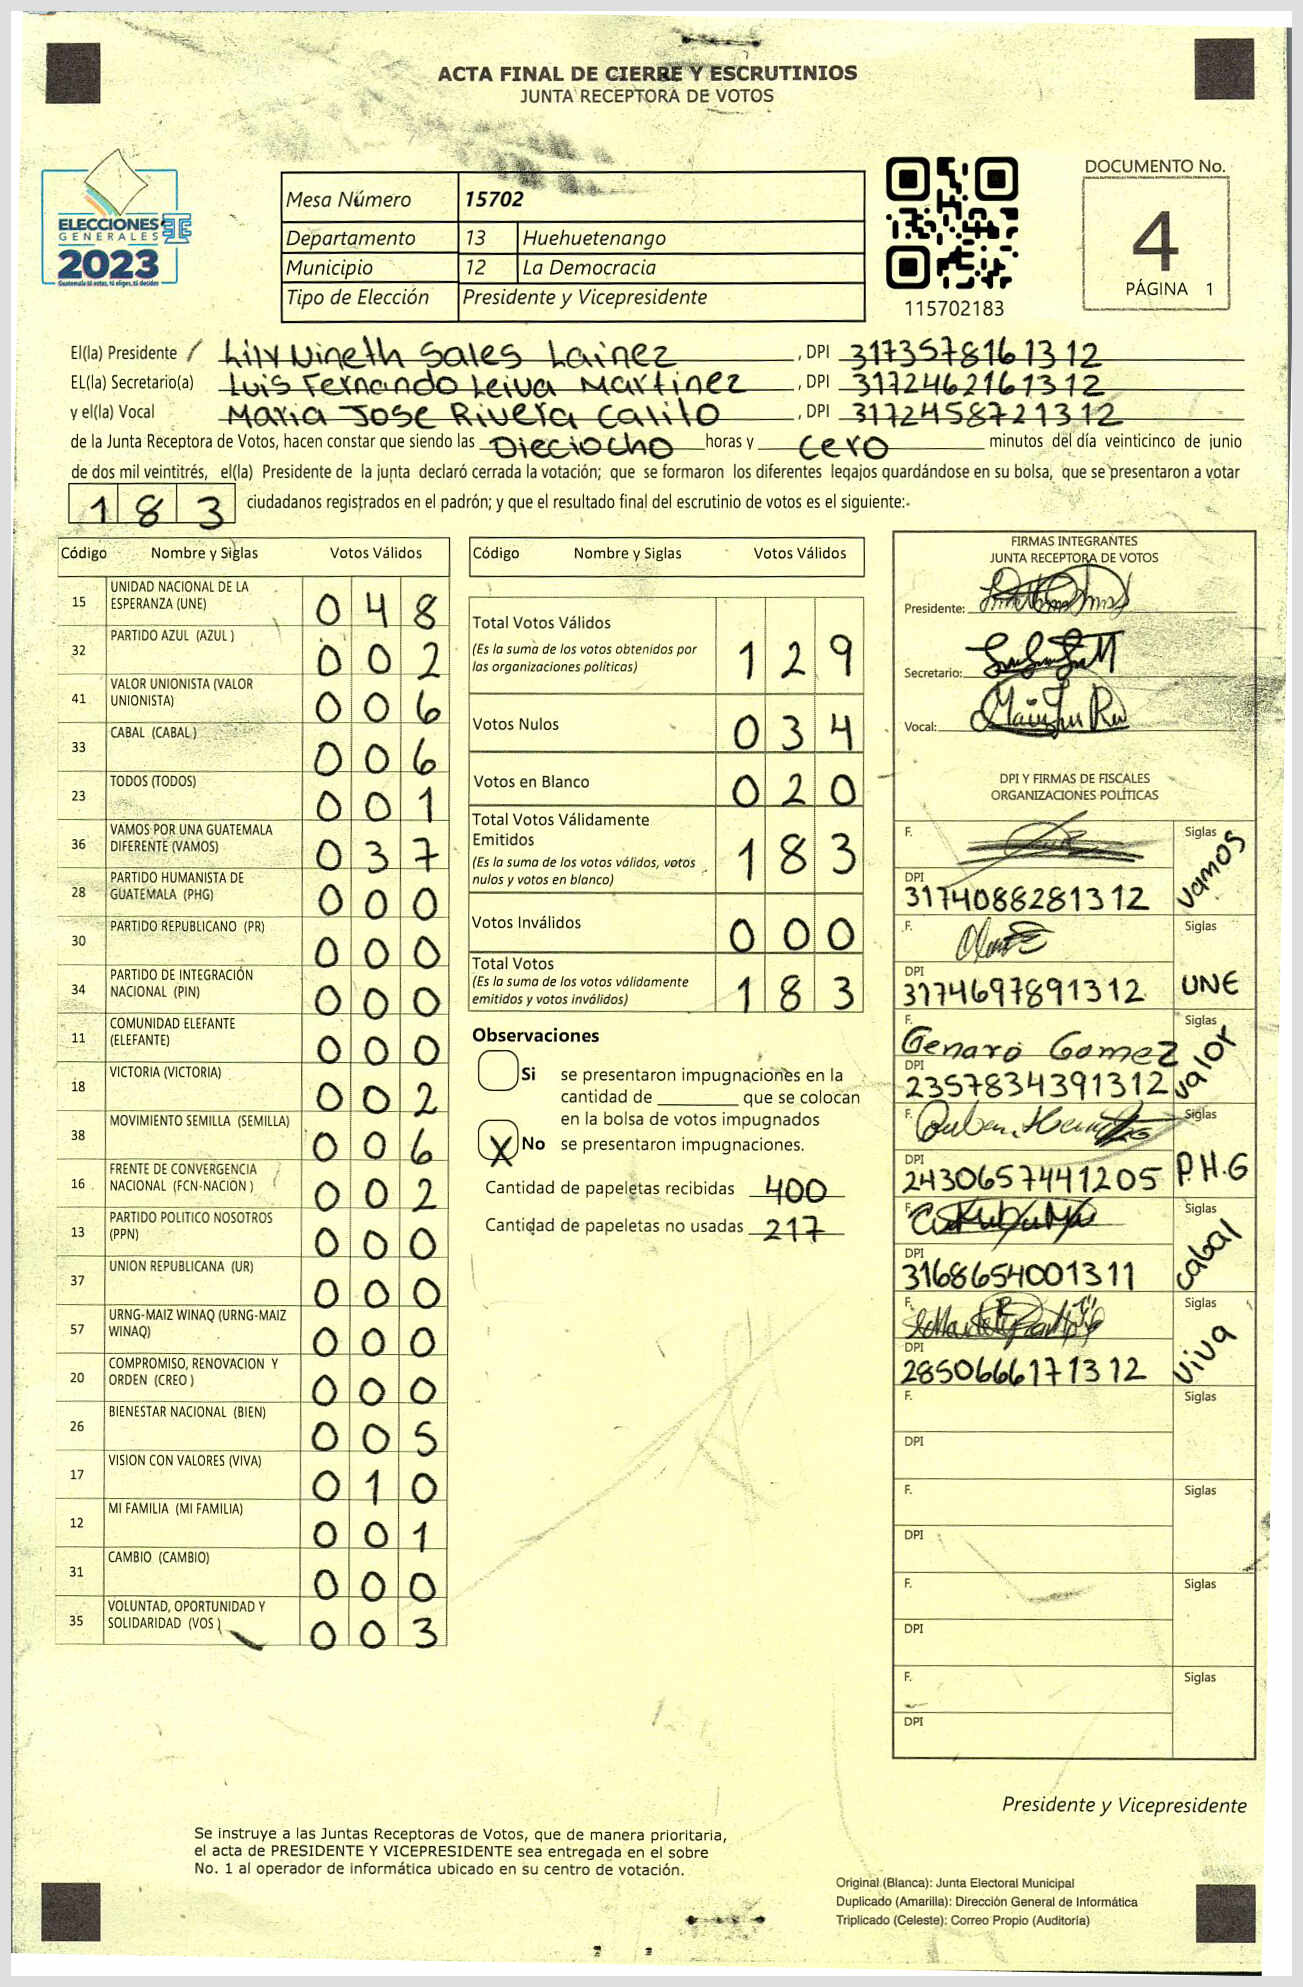 ACTA FINAL DE CIERRE Y ESCRUTINIOS
JUNTA RECEPTORA DE VOTOS
ELECCIONES
GENERALES
2023
Guatemala tú votas, tú eliges, tú decides
Mesa Número 15702
Departamento 13 Huehuetenango
Municipio 12 La Democracia
Tipo de Elección Presidente y Vicepresidente
115702183
DOCUMENTO No.
4
PÁGINA 1
El(la) Presidente Lily Nineth Sales Lainez, DPI 3173578161312
EL(la) Secretario(a) Luis Fernando Leiva Martinez, DPI 3172462161312
y el(la) Vocal Maria Jose Rivera Calito, DPI 3172458721312
de la Junta Receptora de Votos, hacen constar que siendo las Dieciocho horas y cero minutos del día veinticinco de junio
de dos mil veintitrés, el(la) Presidente de la junta declaró cerrada la votación; que se formaron los diferentes legajos guardándose en su bolsa, que se presentaron a votar
183 ciudadanos registrados en el padrón; y que el resultado final del escrutinio de votos es el siguiente:-
Código Nombre y Siglas Votos Válidos
15 UNIDAD NACIONAL DE LA ESPERANZA (UNE) 048
32 PARTIDO AZUL (AZUL ) 002
41 VALOR UNIONISTA (VALOR UNIONISTA) 006
33 CABAL (CABAL ) 006
23 TODOS (TODOS) 001
36 VAMOS POR UNA GUATEMALA DIFERENTE (VAMOS) 037
28 PARTIDO HUMANISTA DE GUATEMALA (PHG) 000
30 PARTIDO REPUBLICANO (PR) 000
34 PARTIDO DE INTEGRACIÓN NACIONAL (PIN) 000
11 COMUNIDAD ELEFANTE (ELEFANTE) 000
18 VICTORIA (VICTORIA) 002
38 MOVIMIENTO SEMILLA (SEMILLA) 006
16 FRENTE DE CONVERGENCIA NACIONAL (FCN-NACION ) 002
13 PARTIDO POLITICO NOSOTROS (PPN) 000
37 UNION REPUBLICANA (UR) 000
57 URNG-MAIZ WINAQ (URNG-MAIZ WINAQ) 000
20 COMPROMISO, RENOVACION Y ORDEN (CREO ) 000
26 BIENESTAR NACIONAL (BIEN) 005
17 VISION CON VALORES (VIVA) 010
12 MI FAMILIA (MI FAMILIA) 001
31 CAMBIO (CAMBIO) 000
35 VOLUNTAD, OPORTUNIDAD Y SOLIDARIDAD (VOS ) 003
Código Nombre y Siglas Votos Válidos
Total Votos Válidos 129
(Es la suma de los votos obtenidos por
las organizaciones políticas)
Votos Nulos 034
Votos en Blanco 020
Total Votos Válidamente
Emitidos 183
(Es la suma de los votos válidos, votos
nulos y votos en blanco)
Votos Inválidos 000
Total Votos 183
(Es la suma de los votos válidamente
emitidos y votos inválidos)
Observaciones
Si se presentaron impugnaciones en la
cantidad de ________ que se colocan
en la bolsa de votos impugnados
X No se presentaron impugnaciones.
Cantidad de papeletas recibidas 400
Cantidad de papeletas no usadas 217
FIRMAS INTEGRANTES
JUNTA RECEPTORA DE VOTOS
Presidente:
Secretario:
Vocal:
DPI Y FIRMAS DE FISCALES
ORGANIZACIONES POLÍTICAS
F. Siglas Vamos
DPI 3174088281312
F. Siglas UNE
DPI 3174697891312
F. Genaro Gomez Siglas Valor
DPI 2357834391312
F. Siglas P.H.G
DPI 2430657441205
F. Siglas cabal
DPI 3168654001311
F. Siglas viva
DPI 2850666171312
F. Siglas
DPI
F. Siglas
DPI
F. Siglas
DPI
F. Siglas
DPI
Presidente y Vicepresidente
Se instruye a las Juntas Receptoras de Votos, que de manera prioritaria,
el acta de PRESIDENTE Y VICEPRESIDENTE sea entregada en el sobre
No. 1 al operador de informática ubicado en su centro de votación.
Original (Blanca): Junta Electoral Municipal
Duplicado (Amarilla): Dirección General de Informática
Triplicado (Celeste): Correo Propio (Auditoría)